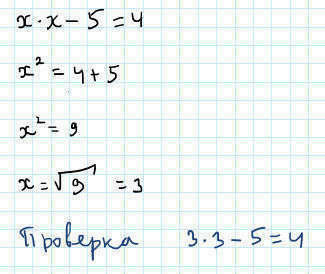 x·x-5=4
x²=4+5
x²=9
x=√9 =3
Проверка 3·3-5=4